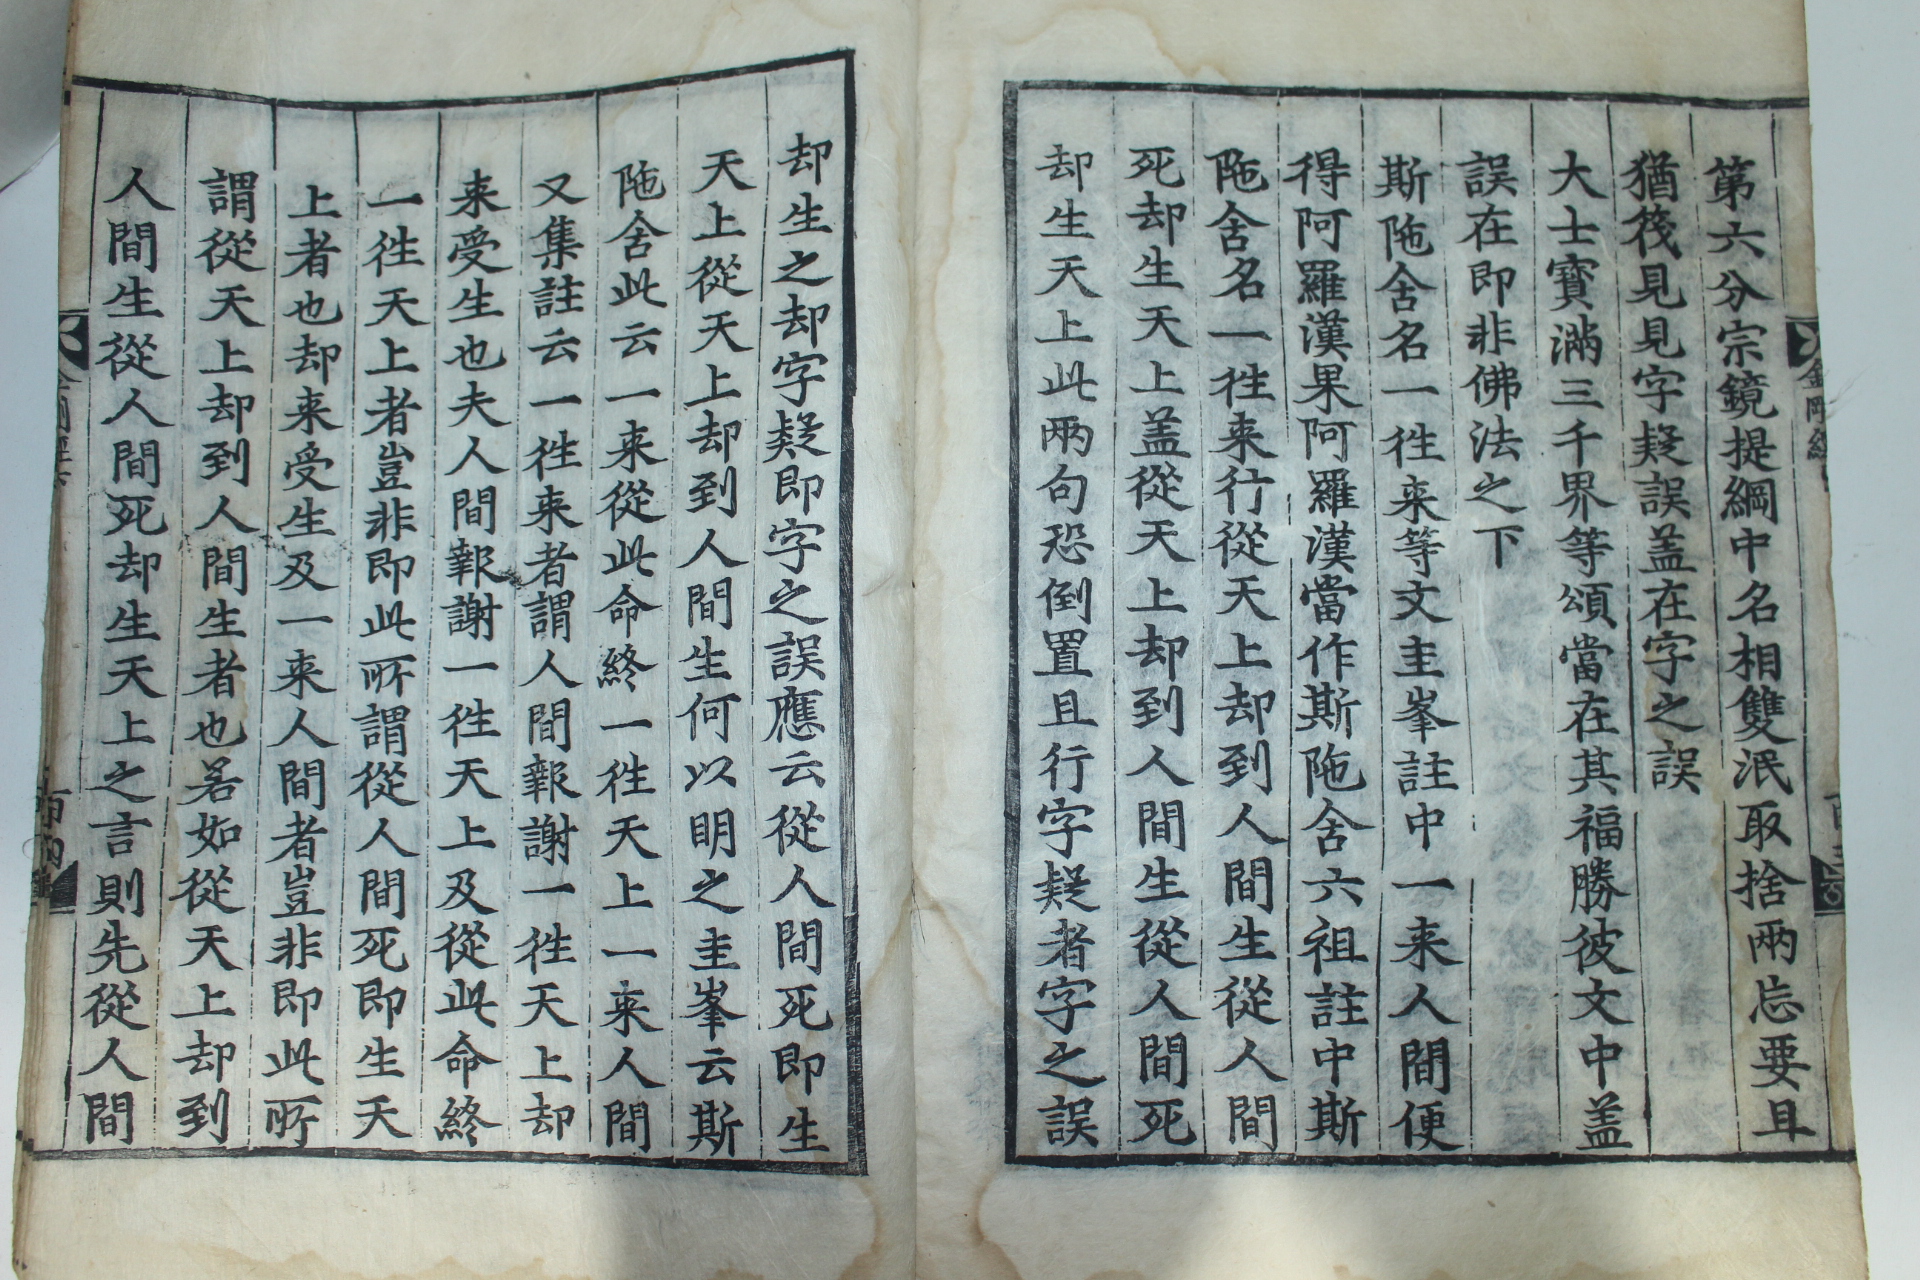 第六分宗鏡提綱中名相雙泯取捨兩忘要且
猶筏見見字疑誤盖在字之誤
大士寳滿三千界等頌當在其福勝彼文中盖
誤在即非佛法之下
斯陁舍名一徃來等文圭峯註中一来人間便
得阿羅漢果阿羅漢當作斯陁舍六祖註中斯
陁舍名一徃来行從天上却到人間生從人間
死却生天上盖從天上却到人間生從人間死
却生天上此兩句恐倒置且行字疑者字之誤
却生之却字疑即字之誤應云從人間死即生
天上從天上却到人間生何以明之圭峯云斯
陁舍此云一来從此命終一徃天上一来人間
又集註云一徃来者謂人間報謝一徃天上却
来受生也夫人間報謝一徃天上及從此命終
一徃天上者豈非即此所謂從人間死即生天
上者也却来受生及一来人間者豈非即此所
謂從天上却到人間生者也若如從天上却到
人間生從人間死却生天上之言則先從人間
金剛經